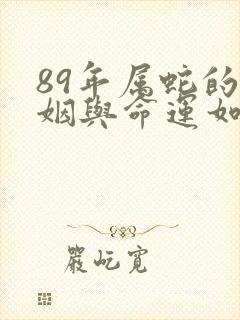 89年属蛇的
姻與命運如
嚴屹寬